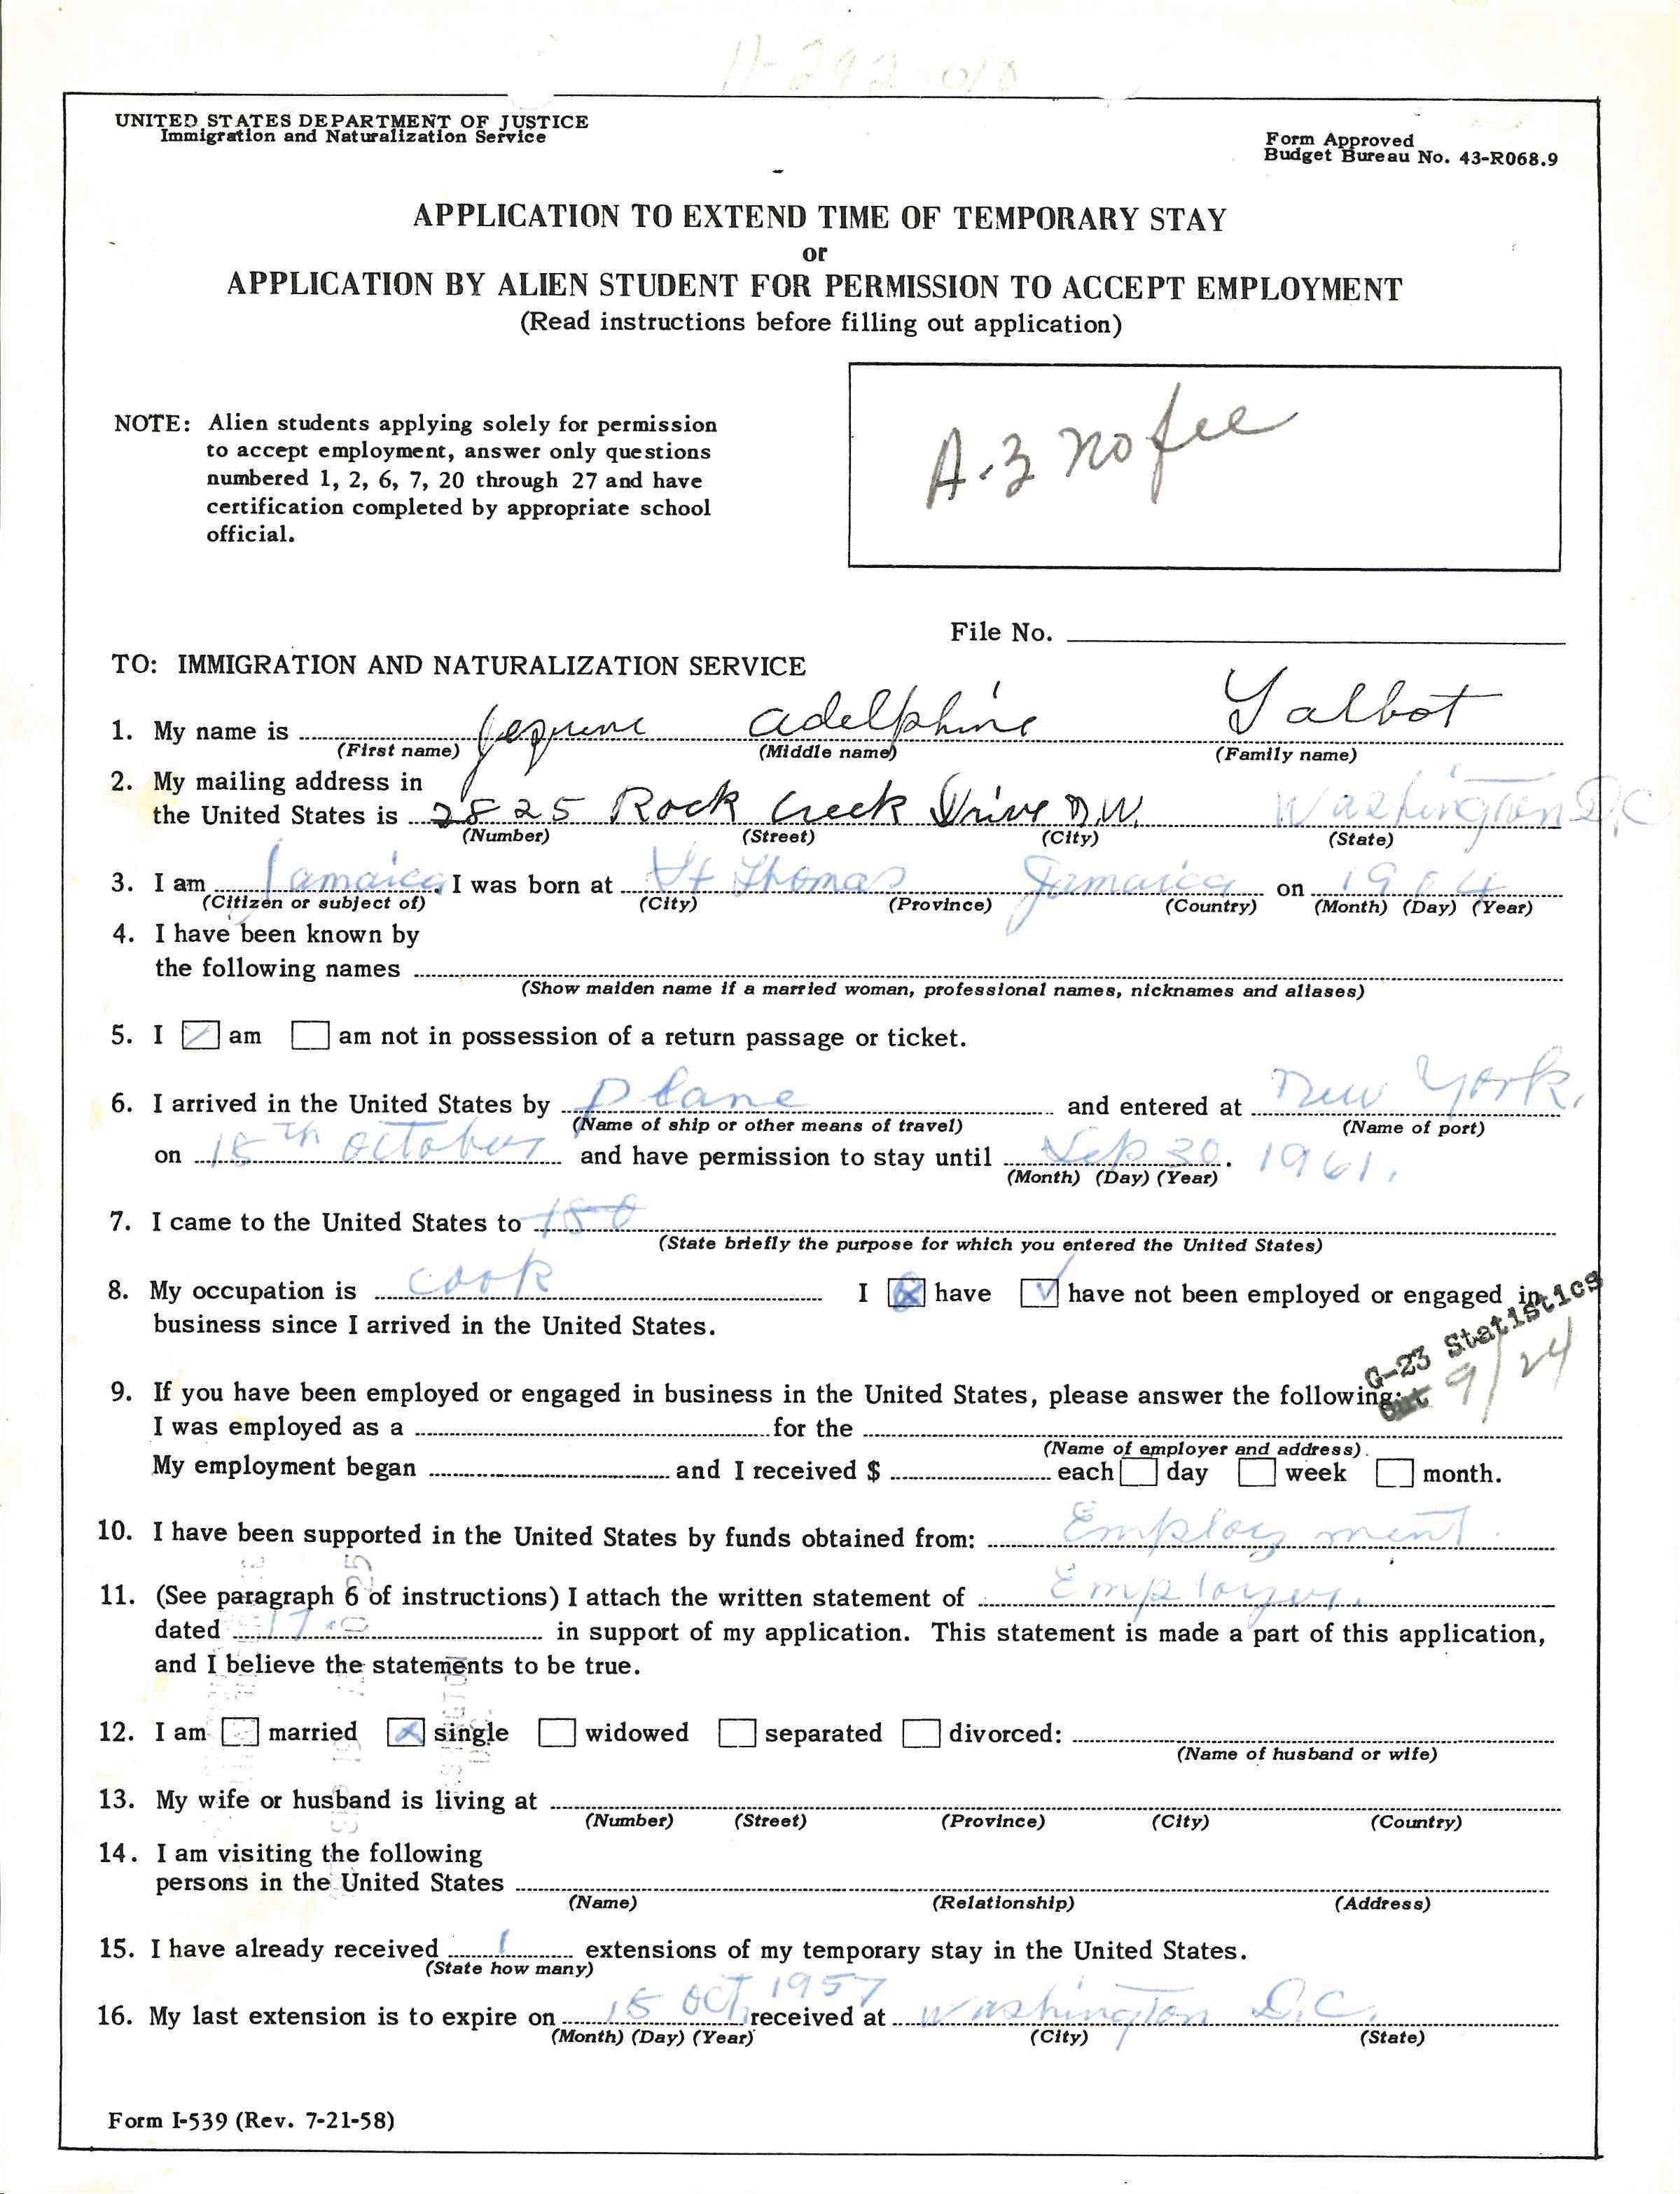 UNITED STATES DEPARTMENT OF JUSTICE
Immigration and Naturalization Service
Form Approved
Budget Bureau No. 43-R068.9
APPLICATION TO EXTEND TIME OF TEMPORARY STAY
or
APPLICATION BY ALIEN STUDENT FOR PERMISSION TO ACCEPT EMPLOYMENT
(Read instructions before filling out application)
NOTE: Alien students applying solely for permission
to accept employment, answer only questions
numbered 1, 2, 6, 7, 20 through 27 and have
certification completed by appropriate school
official.
A-3 no fee
File No.
TO: IMMIGRATION AND NATURALIZATION SERVICE
1. My name is adelphine Talbot
(First name) (Middle name) (Family name)
2. My mailing address in
the United States is 2825 Rock Creek Drive N.W. Washington D.C
(Number) (Street) (City) (State)
3. I am Jamaica I was born at St Thomas Jamaica on 1904
(Citizen or subject of) (City) (Province) (Country) (Month) (Day) (Year)
4. I have been known by
the following names
(Show maiden name if a married woman, professional names, nicknames and aliases)
5. I am am not in possession of a return passage or ticket.
6. I arrived in the United States by Plane and entered at New York.
(Name of ship or other means of travel) (Name of port)
on 15th October and have permission to stay until Sep 30. 1961.
(Month) (Day) (Year)
7. I came to the United States to
(State briefly the purpose for which you entered the United States)
8. My occupation is Cook I have have not been employed or engaged in
business since I arrived in the United States.
G-23 Statistics
Out 9/24
9. If you have been employed or engaged in business in the United States, please answer the following:
I was employed as a for the
(Name of employer and address).
My employment began and I received $ each day week month.
10. I have been supported in the United States by funds obtained from: Employment.
11. (See paragraph 6 of instructions) I attach the written statement of Employer.
dated in support of my application. This statement is made a part of this application,
and I believe the statements to be true.
12. I am married single widowed separated divorced:
(Name of husband or wife)
13. My wife or husband is living at
(Number) (Street) (Province) (City) (Country)
14. I am visiting the following
persons in the United States
(Name) (Relationship) (Address)
15. I have already received 1 extensions of my temporary stay in the United States.
(State how many)
16. My last extension is to expire on 15 Oct, 1957 received at Washington D.C.
(Month) (Day) (Year) (City) (State)
Form I-539 (Rev. 7-21-58)